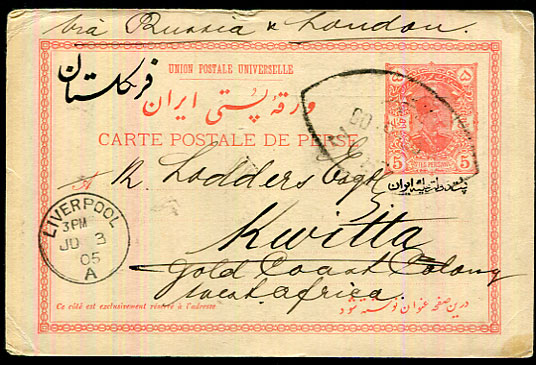 via Russia & London.
فرنگستان
UNION POSTALE UNIVERSELLE
ورقهٔ پستی ایران
CARTE POSTALE DE PERSE
۵ ۵
5 5
R. Lodders Esqre
Kwitta
Gold Coast Colony
West Africa.
LIVERPOOL
3 PM
JU 3
05
A
Ce côté est exclusivement réservé à l'adresse
درین صفحه عنوان نوشته شود